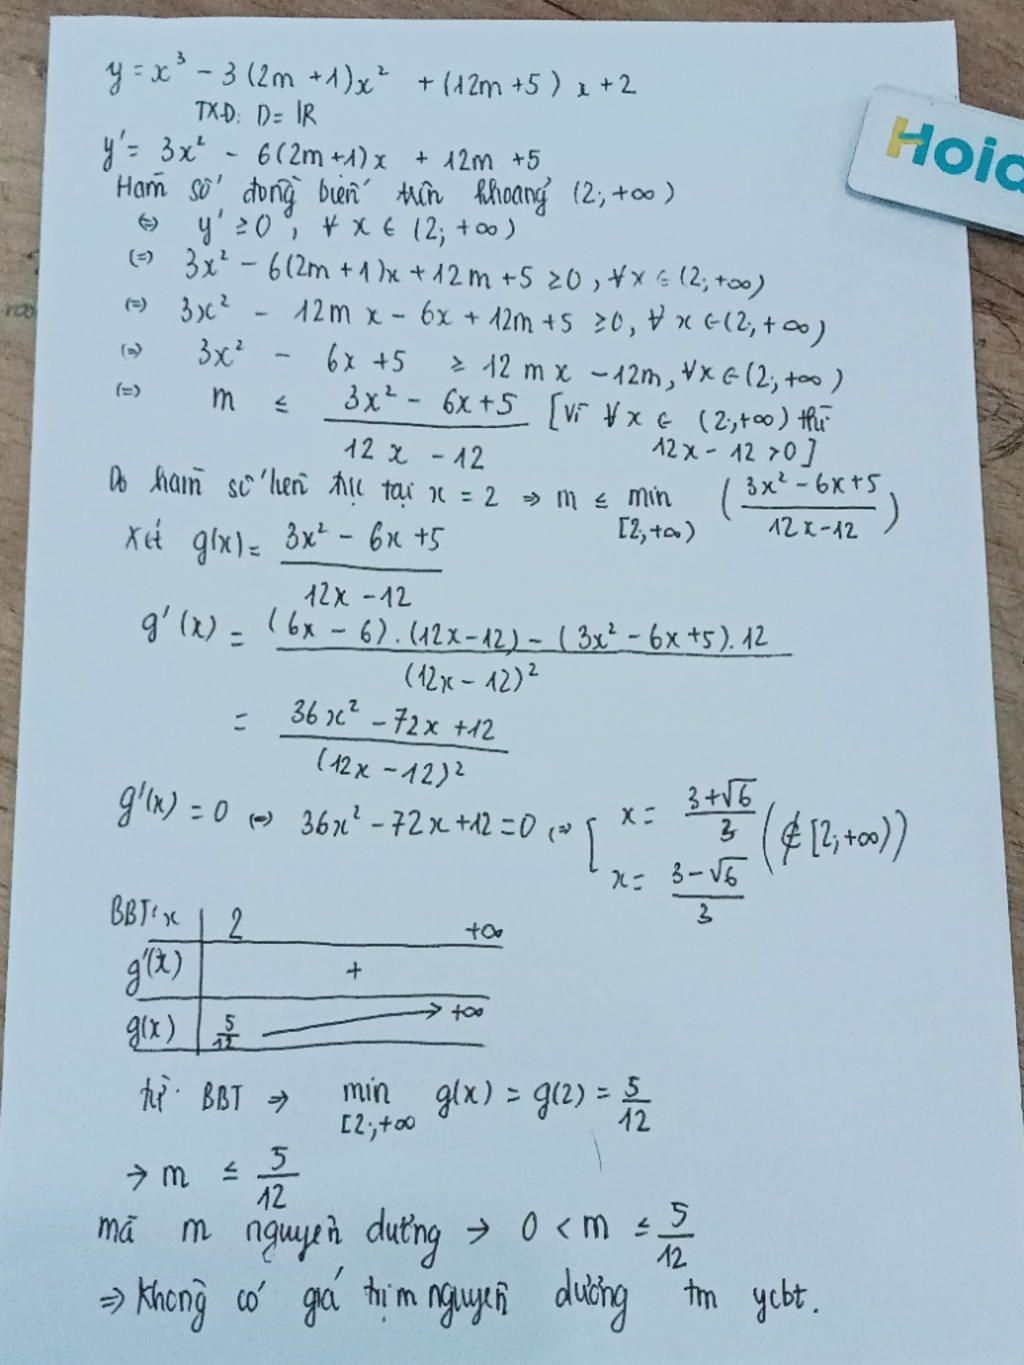 y = x³ - 3(2m+1)x² + (12m+5)x + 2
TXĐ: D = ℝ
Hoid
y' = 3x² - 6(2m+1)x + 12m + 5
Hàm số đồng biến trên khoảng (2; +∞)
⇔ y' ≥ 0, ∀ x ∈ (2; +∞)
⇔ 3x² - 6(2m+1)x + 12m + 5 ≥ 0, ∀x ∈ (2; +∞)
⇔ 3x² - 12mx - 6x + 12m + 5 ≥ 0, ∀ x ∈ (2; +∞)
⇔ 3x² - 6x + 5 ≥ 12mx - 12m, ∀x ∈ (2; +∞)
⇔ m ≤ (3x² - 6x + 5)/(12x - 12) [Vì ∀x ∈ (2; +∞) thì 12x - 12 > 0]
Do hàm số liên tục tại x = 2 ⇒ m ≤ min [2; +∞) ((3x² - 6x + 5)/(12x - 12))
Xét g(x) = (3x² - 6x + 5)/(12x - 12)
g'(x) = ((6x - 6).(12x - 12) - (3x² - 6x + 5).12)/(12x - 12)²
= (36x² - 72x + 12)/(12x - 12)²
g'(x) = 0 ⇔ 36x² - 72x + 12 = 0 ⇔ [ x = (3+√6)/3
x = (3-√6)/3 (∉ [2; +∞))
BBT: x 2 +∞
g'(x) +
g(x) 5/12 → +∞
từ BBT ⇒ min [2; +∞ g(x) = g(2) = 5/12
→ m ≤ 5/12
mà m nguyên dương → 0 < m ≤ 5/12
⇒ Không có giá trị m nguyên dương tm ycbt.